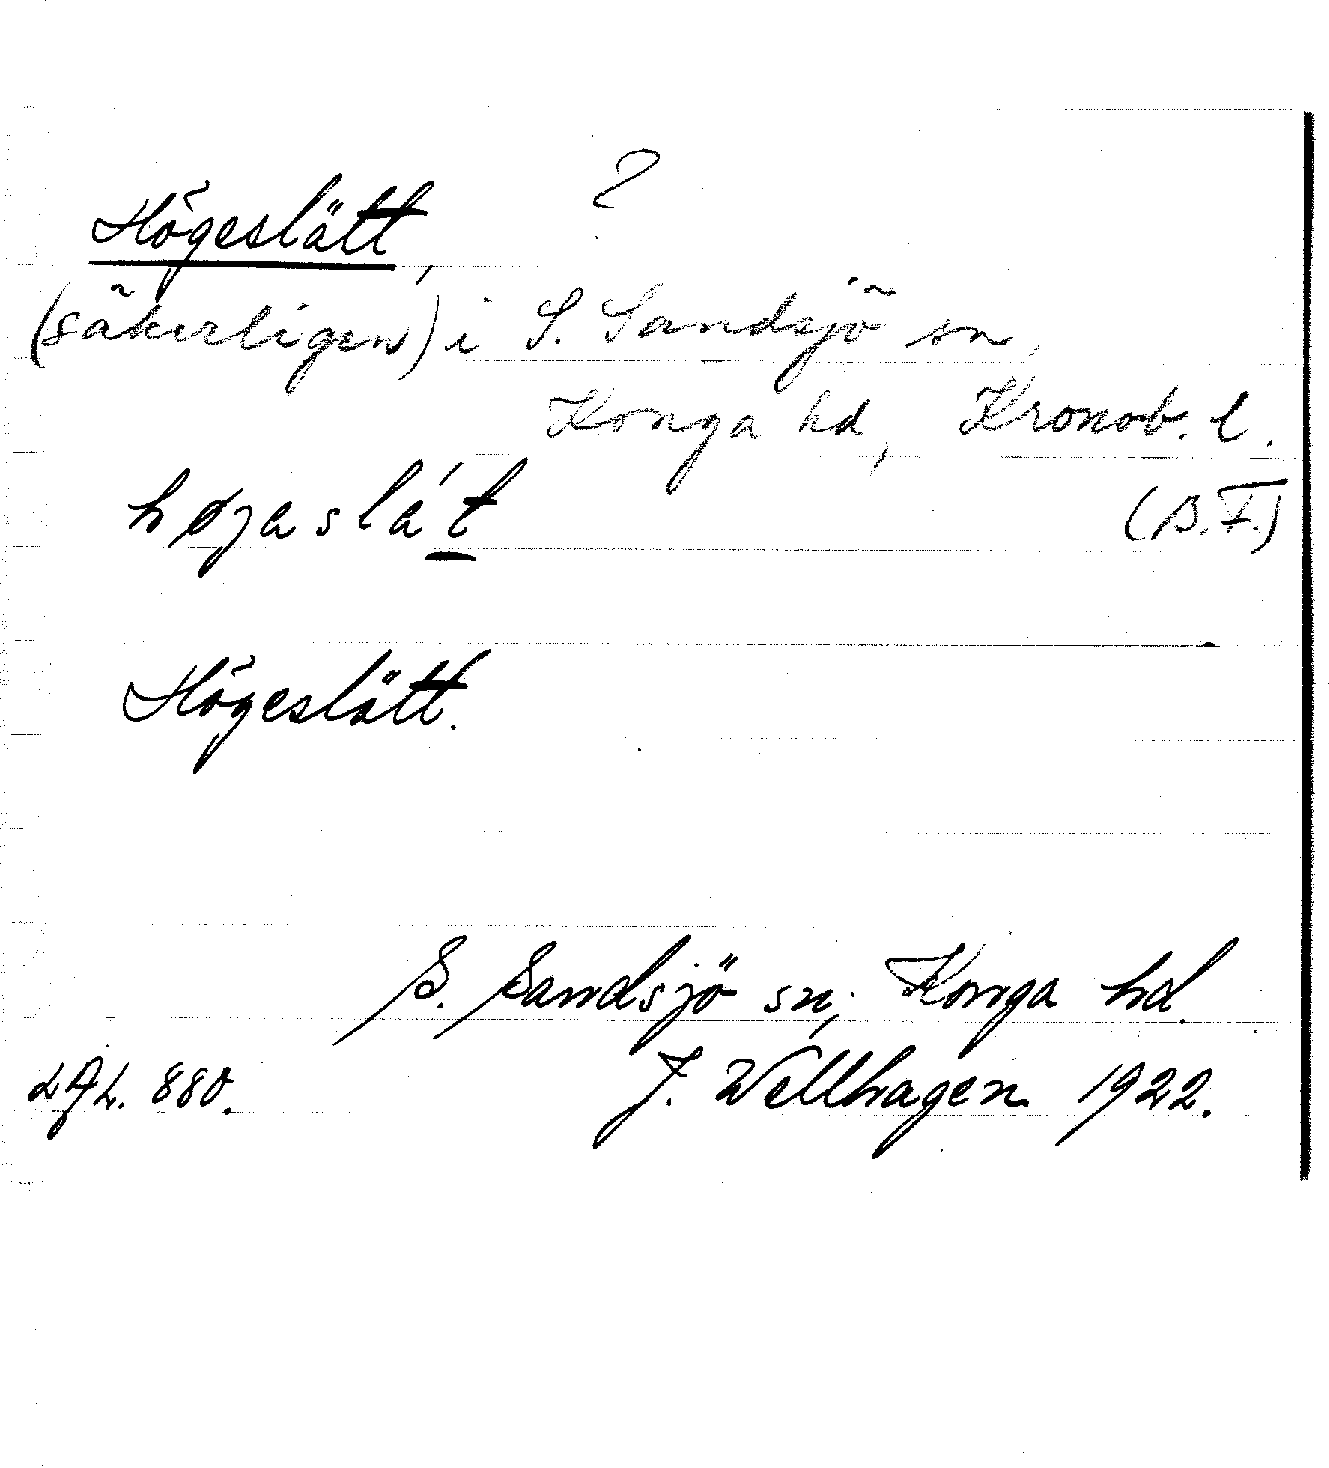 Högeslätt, ?
(säkerligen) i S. Sandsjö sn,
Konga hd, Kronob. l.
højaslá´t (B.F.)
Högeslätt.
S. Sandsjö sn, Konga hd.
LAL. 880. J. Wellhagen 1922.